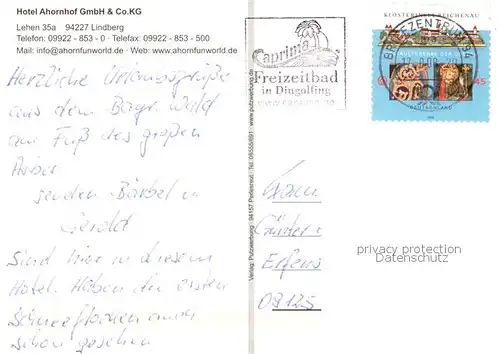 Hotel Ahornhof GmbH & Co.KG
Lehen 35a 94227 Lindberg
Telefon: 09922 - 853 - 0 · Telefax: 09922 - 853 - 500
Mail: info@ahornfunworld.de · Web: www.ahornfunworld.de
Herzliche Urlaubsgrüße
aus dem Bayr. Wald
am Fuß des großen
Arber
senden Bärbel u
Gerold
Sind hier in diesem
Hotel. Haben die ersten
Schneeflocken auch
schon gesehen
Verlag: Putzwerbung · 94157 Perlesreut · Tel. 08555/691 · www.putzwerbung.de
Caprima
Freizeitbad
in Dingolfing
www.caprima.de
KLOSTERINSEL REICHENAU
BRIEFZENTRUM 94
45
DEUTSCHLAND
Günter
09125
privacy protection
Datenschutz